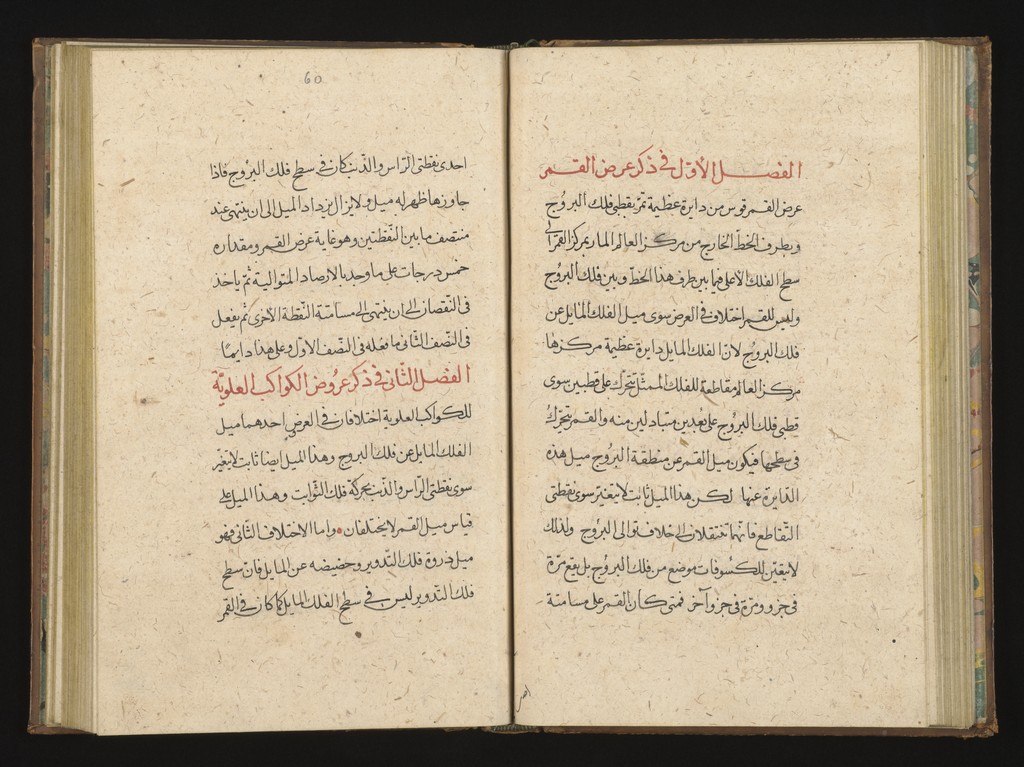 الفصل الأوّل في ذكر عرض القمر
عرض القمر قوس من دايرة عظيمة تمرّ بقطبي فلك البروُج
وبطرف الخطّ الخارج من مركز العالم المار بمركز القمر الى
سطح الفلك الأعلى فيما بين طرف هذا الخط وبين فلك البروُج
وليس للقمر اختلاف في العرض سوى ميل الفلك المايل عن
فلك البروُج لانّ الفلك المايل دايرة عظيمة مركزها
مركز العالم مقاطعة للفلك الممثّل تتحرّك على قطبين سوى
قطبي فلك البروُج على بُعدين متبادلين منه والقمر يتحرّك
في سطحها فيكون ميل القمر عن منطقة البروُج ميل هذه
الدّايرة عنها لكن هذا الميل ثابت لا يتغيّر سوى نقطتي
التّقاطع فانّهما تنتقلان الى خلاف توالى البروُج ولذلك
لا يتعيّن للكسُوفات موضع من فلك البروُج بل يقع مرّة
في جزو ومرّة في جزو آخر فمتى كان القمر على مسامتة
احدى
60
احدى نقطتي الرّاس والذّنب كان في سطح فلك البروُج فاذا
جاوزها ظهر له ميل ولا يزال يزداد الميل الى ان ينتهى عند
منتصف ما بين النّقطتين وهو غاية عرض القمر ومقداره
خمس درجات على ما وجد بالارصاد المتوالية ثمّ ياخذ
في النّقصان الى ان ينتهى الى مسامتة النّقطة الأخرى ثم يفعل
في النّصف الثّاني ما فعله في النّصف الاوّل وعلى هذا دايمًا
الفصل الثّاني في ذكر عروُض الكواكب العلويّة
للكواكب العلوية اختلافان في العرض احدهما ميل
الفلك المايل عن فلك البروج وهذا الميل ايضا ثابت لا يتغيّر
سوى نقطتي الرّاس والذّنب بحركة فلك الثّوابت وهذا الميل على
قياس ميل القمر لا يختلفان واما الاختلاف الثّاني فهو
ميل ذروة فلك التّدوير وحضيضه عن المايل فان سطح
فلك التّدوير ليس في سطح الفلك المايل كما كان في القمر